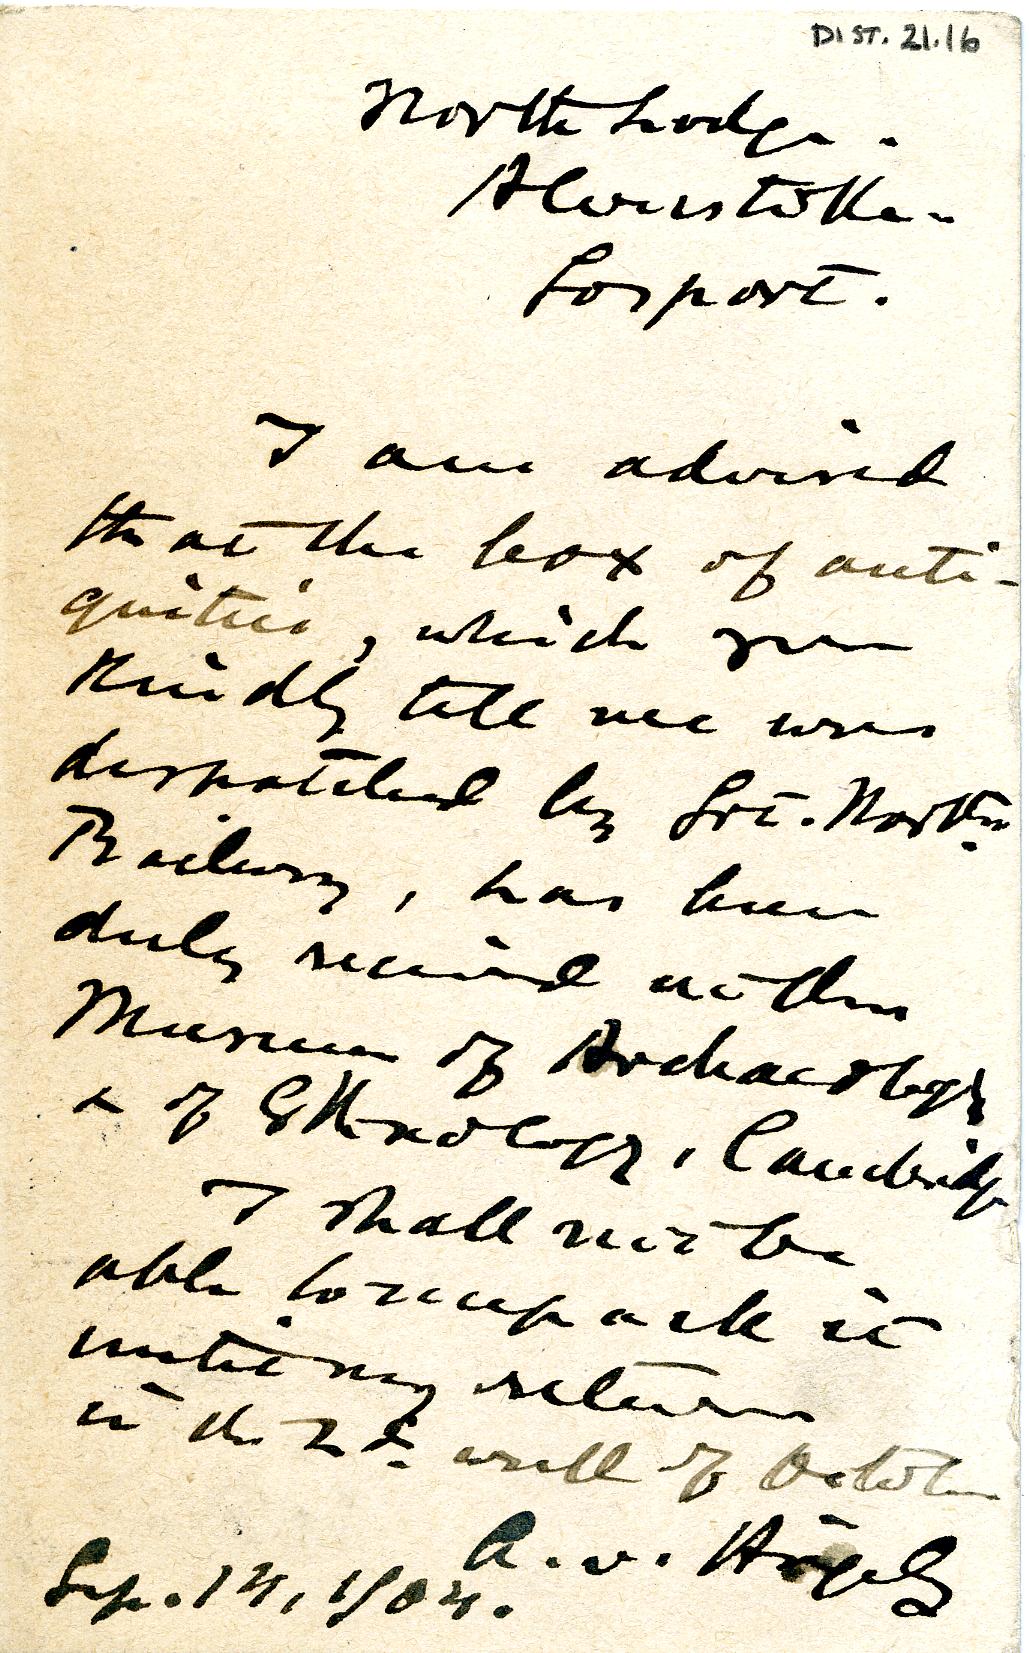 DIST. 21.16
North Lodge.
Alverstoke.
Gosport.
I am advised
that the box of anti-
quities, which you
kindly tell me was
despatched by Grt. Northn.
Railway, has been
duly received at the
Museum of Archaeology
& of Ethnology, Cambridge
I shall not be
able to unpack it
until my return
in the 2d. week of October
A. v. Hügel
Sep. 14, 1904.